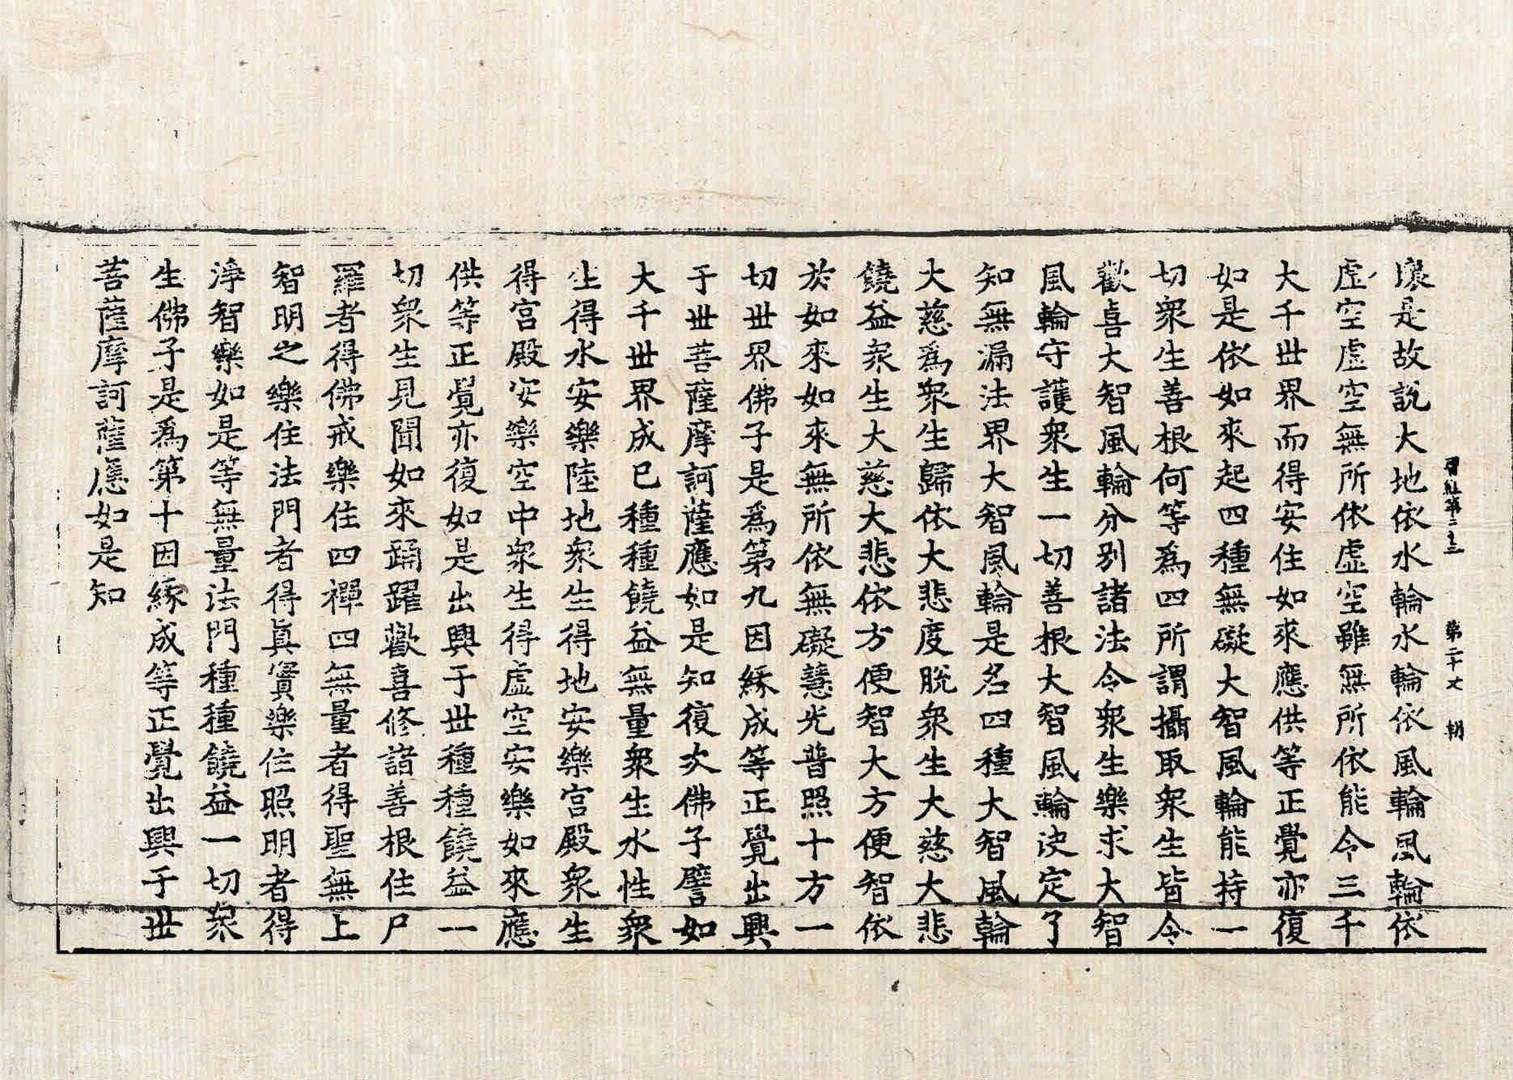 晉經第三十三　第二十七　朝
壞是故說大地依水輪水輪依風輪風輪依
虛空虛空無所依虛空雖無所依能令三千
大千世界而得安住如來應供等正覺亦復
如是依如來起四種無礙大智風輪能持一
切衆生善根何等爲四所謂攝取衆生皆令
歡喜大智風輪分別諸法令衆生樂求大智
風輪守護衆生一切善根大智風輪決定了
知無漏法界大智風輪是名四種大智風輪
大慈爲衆生歸依大悲度脫衆生大慈大悲
饒益衆生大慈大悲依方便智大方便智依
於如來如來無所依無礙慧光普照十方一
切世界佛子是爲第九因緣成等正覺出興
于世菩薩摩訶薩應如是知復次佛子譬如
大千世界成已種種饒益無量衆生水性衆
生得水安樂陸地衆生得地安樂宮殿衆生
得宮殿安樂空中衆生得虛空安樂如來應
供等正覺亦復如是出興于世種種饒益一
切衆生見聞如來踊躍歡喜修諸善根住尸
羅者得佛戒樂住四禪四無量者得聖無上
智明之樂住法門者得眞實樂住照明者得
淨智樂如是等無量法門種種饒益一切衆
生佛子是爲第十因緣成等正覺出興于世
菩薩摩訶薩應如是知